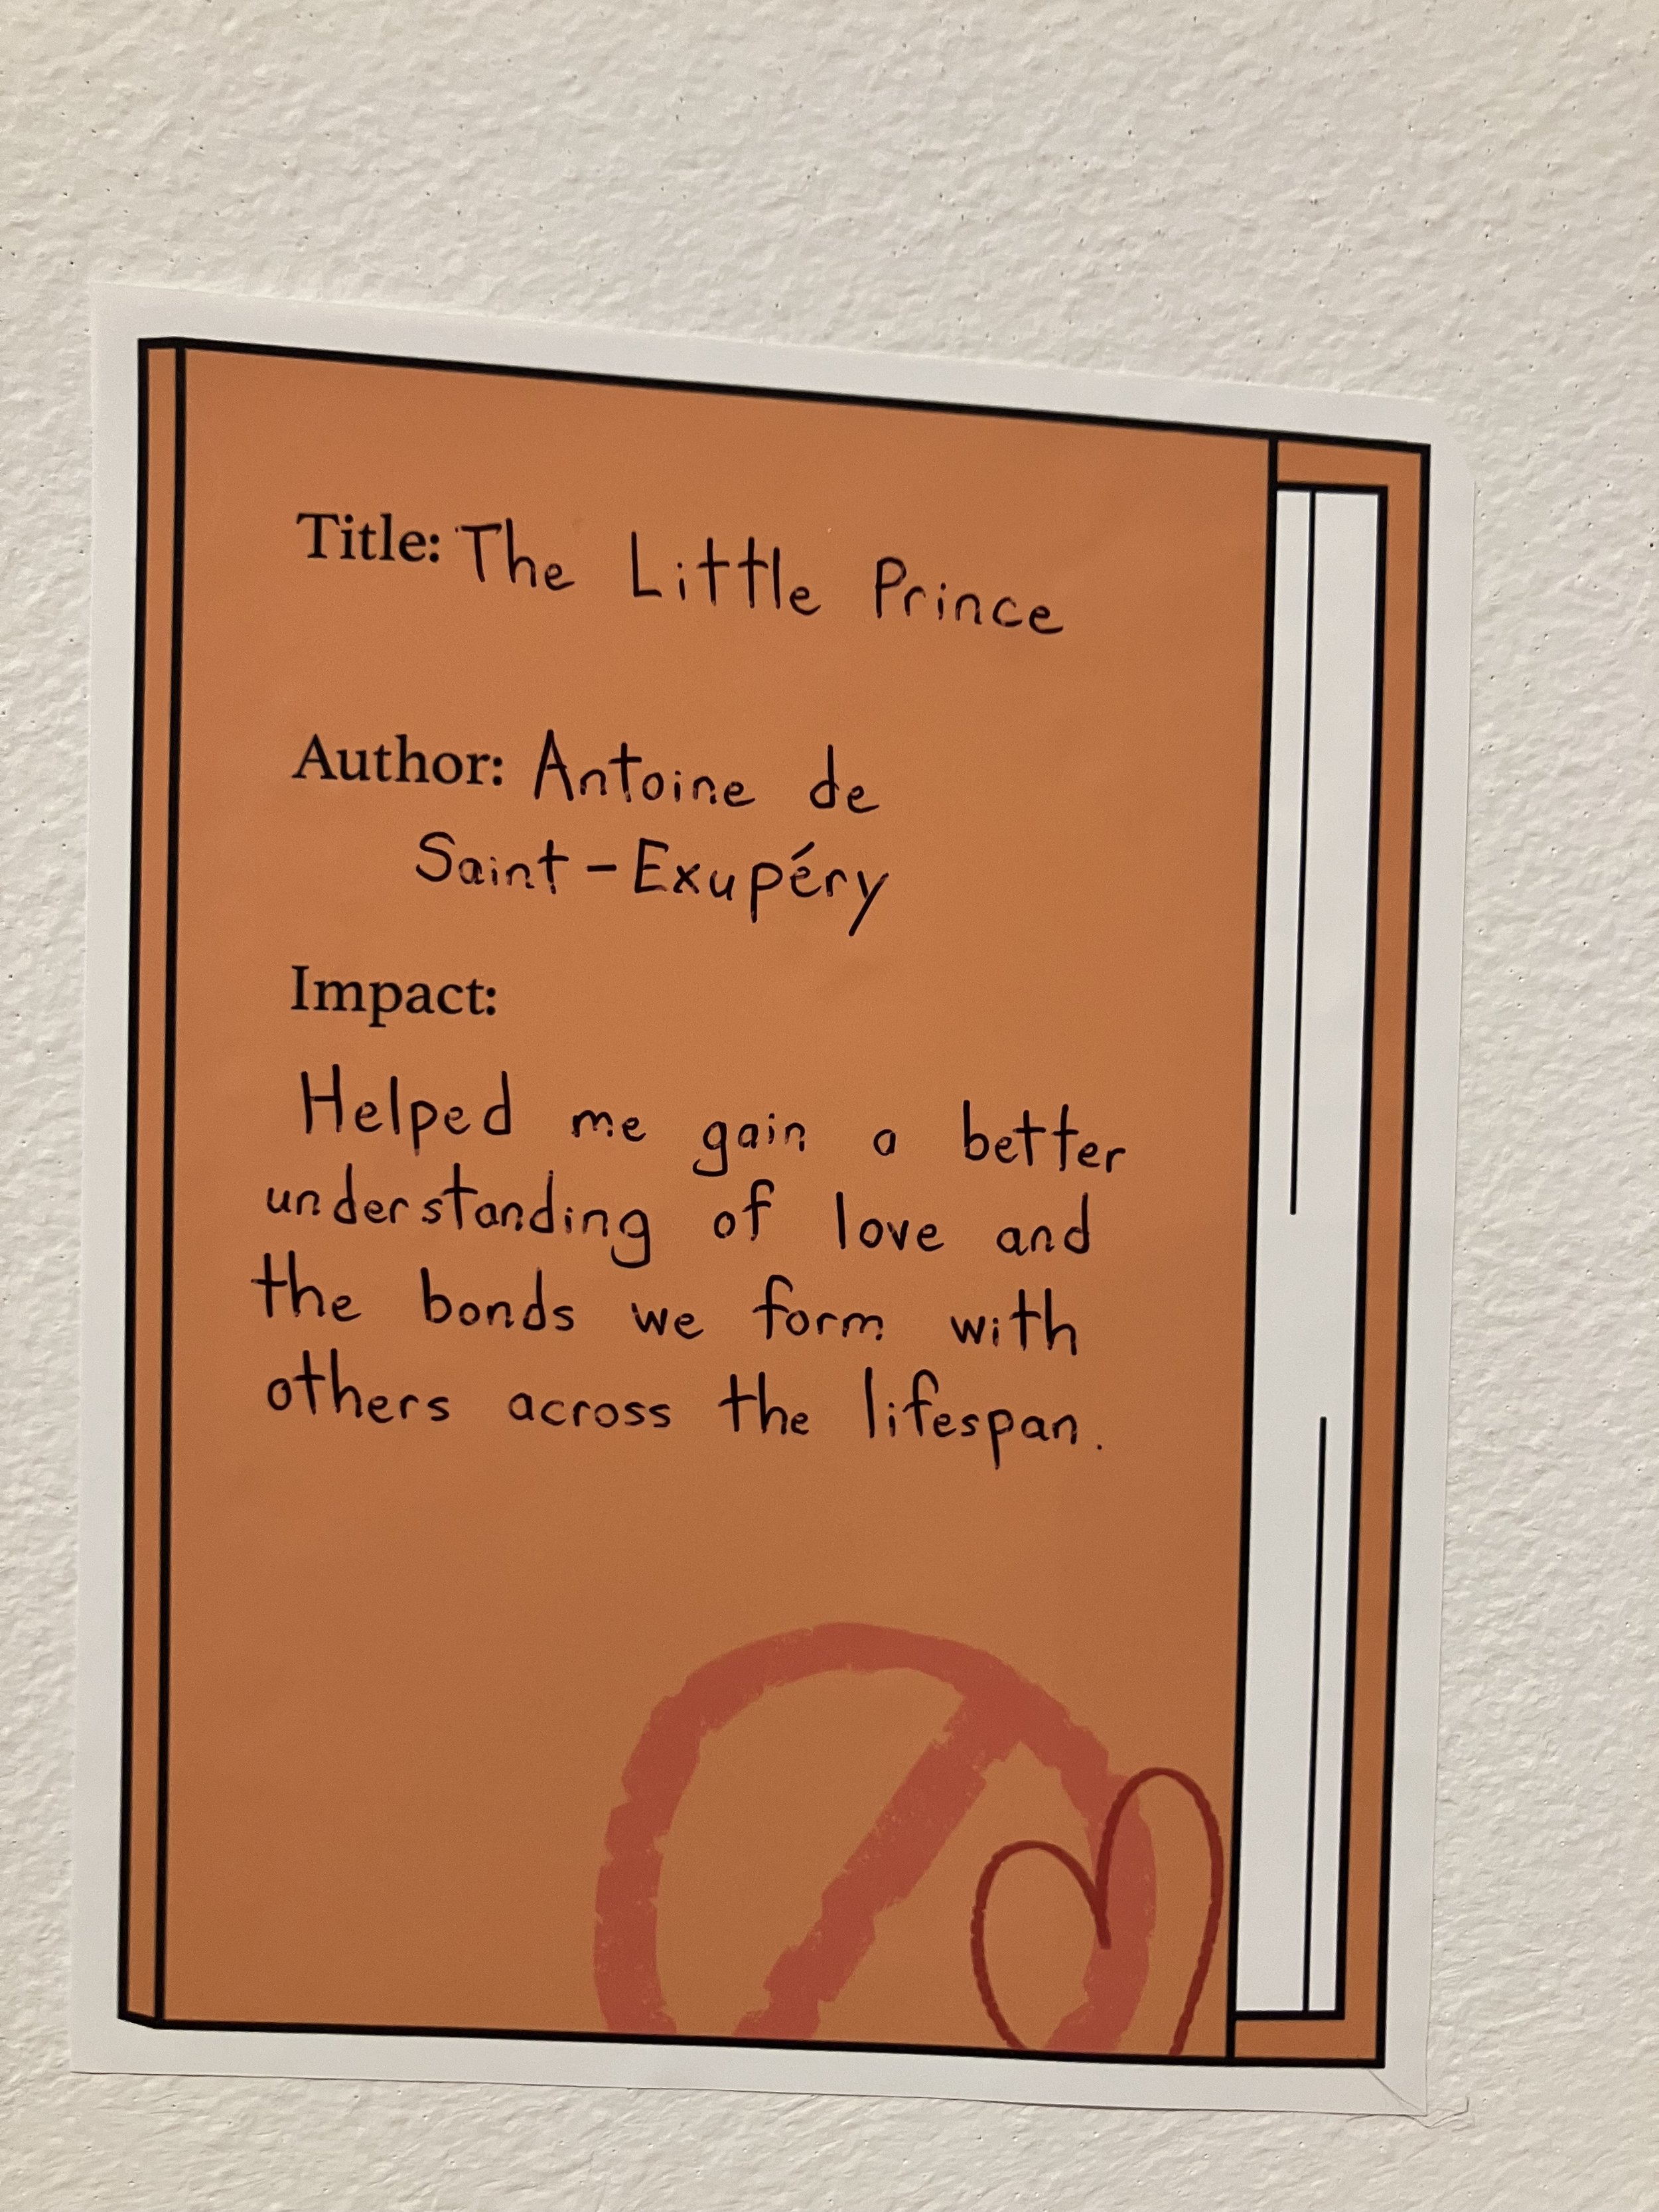 Title: The Little Prince
Author: Antoine de
Saint-Exupéry
Impact:
Helped me gain a better
understanding of love and
the bonds we form with
others across the lifespan.